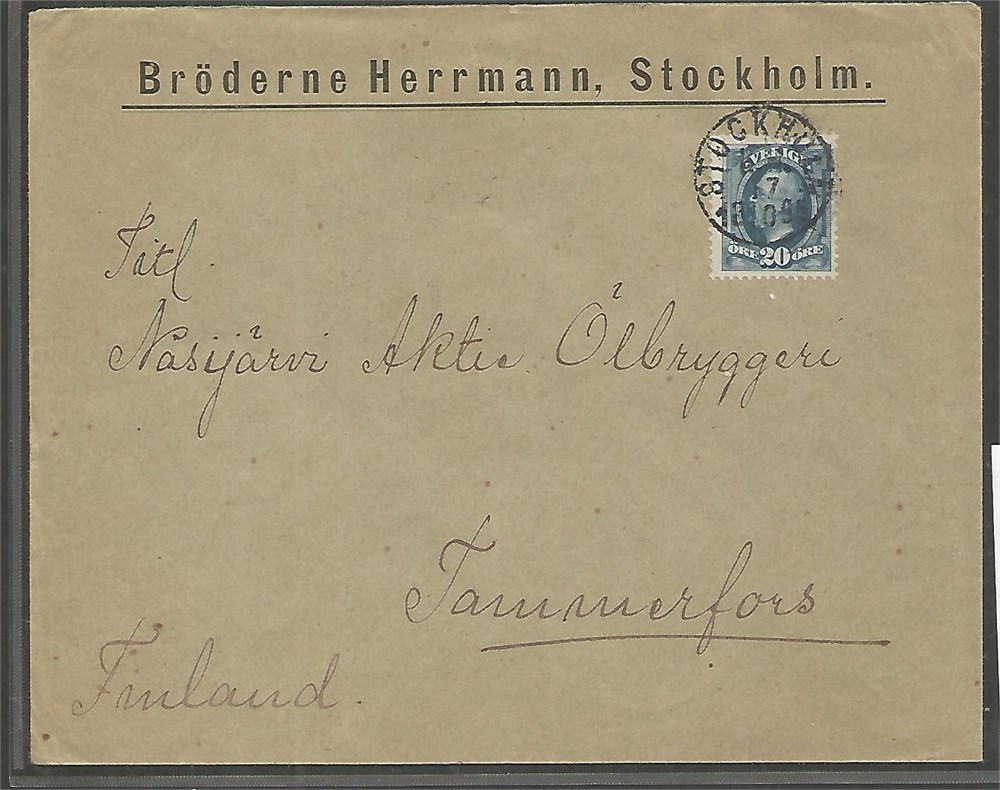 Bröderne Herrmann, Stockholm.
STOCKHOLM
SVERIGE
7
ÖRE 20 ÖRE
Titl.
Näsijärvi Aktie Ölbryggeri
Tammerfors
Finland.